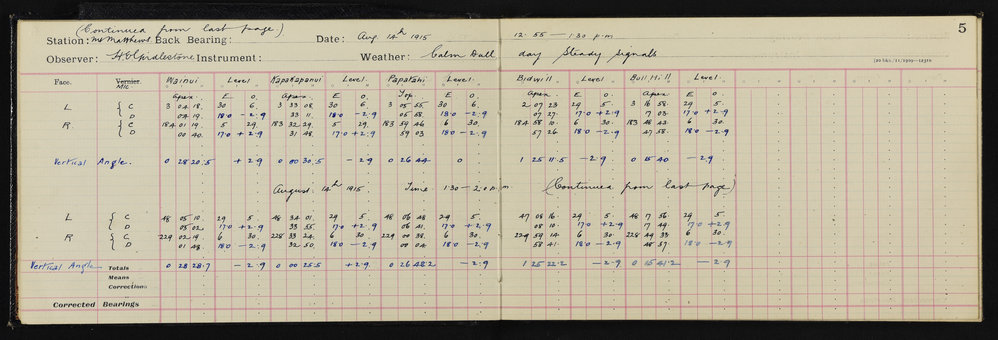 (Continued from last page)
5
Station: Mt Matthews Back Bearing: Date: Aug 14th 1915 12.55 — 1.30 p.m
Observer: H E Girdlestone Instrument: Weather: Calm Dull day Steady signals
Face. Vernier. Mic Wainui Level Kapakapanui Level. Papatahi Level. Bidwill Level. Bull Hill Level.
Apex. E O. Apex. E O. Top. E O. Apex. E O. Apex. E O.
L { C 3 04 18. 30 6. 3 33 08. 30 6. 3 05 55. 30 6. 2 07 23 29 5. 3 16 58. 29 5.
D 04 19. 18.0 - 2.9 33 11. 18.0 - 2.9 05 58. 18.0 - 2.9 07 27. 17.0 + 2.9 17.0 + 2.9
R. { C 184 01 19. 5 29. 183 32 29. 5 29. 183 59 46 6 30. 184 58 10. 6 30. 183 48 42 6 30.
D 00 40. 17.0 + 2.9 31 48. 17.0 + 2.9 59 03 18.0 - 2.9 57 26 18.0 - 2.9 47 58. 18.0 - 2.9
Vertical Angle. 0 28 20.5 + 2.9 0 00 30.5 - 2.9 0 26 44 0 1 25 11.5 - 2.9 0 15 40 - 2.9
August 14th 1915. Time 1.30 — 2.0 p.m. (Continued from last page)
L { C 48 05 10. 29 5. 48 34 01. 29 5. 48 06 48 29 5. 47 08 16. 29 5. 48 17 56 29 5.
D 05 02. 17.0 + 2.9 33 55. 17.0 + 2.9 06 41. 17.0 + 2.9 08 10. 17.0 + 2.9 17 49. 17.0 + 2.9
R { C 229 02 18. 6 30. 228 33 24. 6 30. 229 00 38. 6 30. 229 59 14 6 30. 228 49 33 6 30.
D 01 48. 18.0 - 2.9 32 50. 18.0 - 2.9 00 04 18.0 - 2.9 58 41. 18.0 - 2.9 48 57. 18.0 - 2.9
Vertical Angle Totals 0 28 28.7 - 2.9 0 00 25.5 + 2.9 0 26 48.2 - 2.9 1 25 22.2 - 2.9 0 15 41.2 - 2.9
Means
Corrections
Corrected Bearings